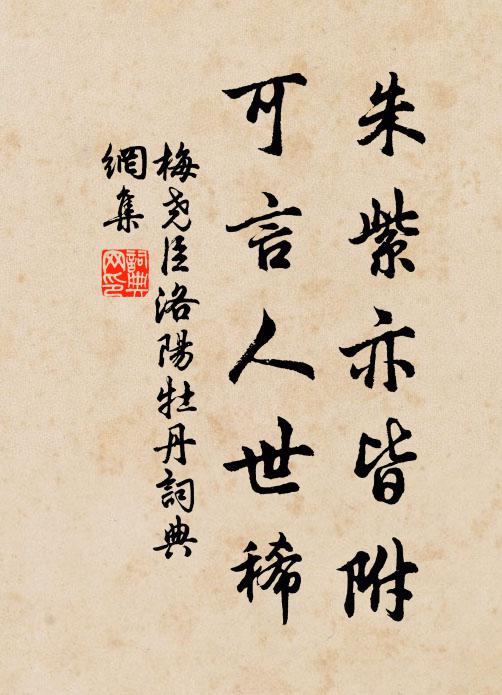 朱紫亦皆附
可言人世稀
梅尧臣洛陽牡丹詞典
網集
詞典
网印